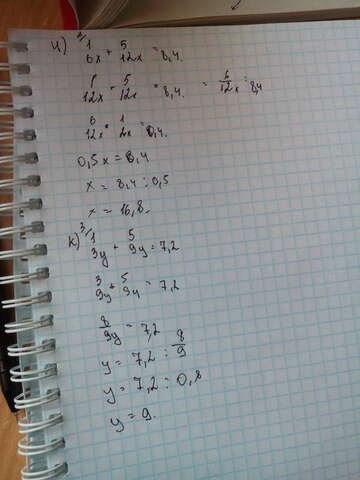 и) 2/ 1/6x + 5/12x = 8,4.
1/12x + 5/12x = 8,4. = 6/12 x = 8,4
6/12x = 1/2x = 8,4.
0,5x = 8,4
x = 8,4 : 0,5
x = 16,8.
к) 3/ 1/3y + 5/9y = 7,2
3/9y + 5/9y = 7,2
8/9y = 7,2
y = 7,2 : 8/9
y = 7,2 : 0,8
y = 9.